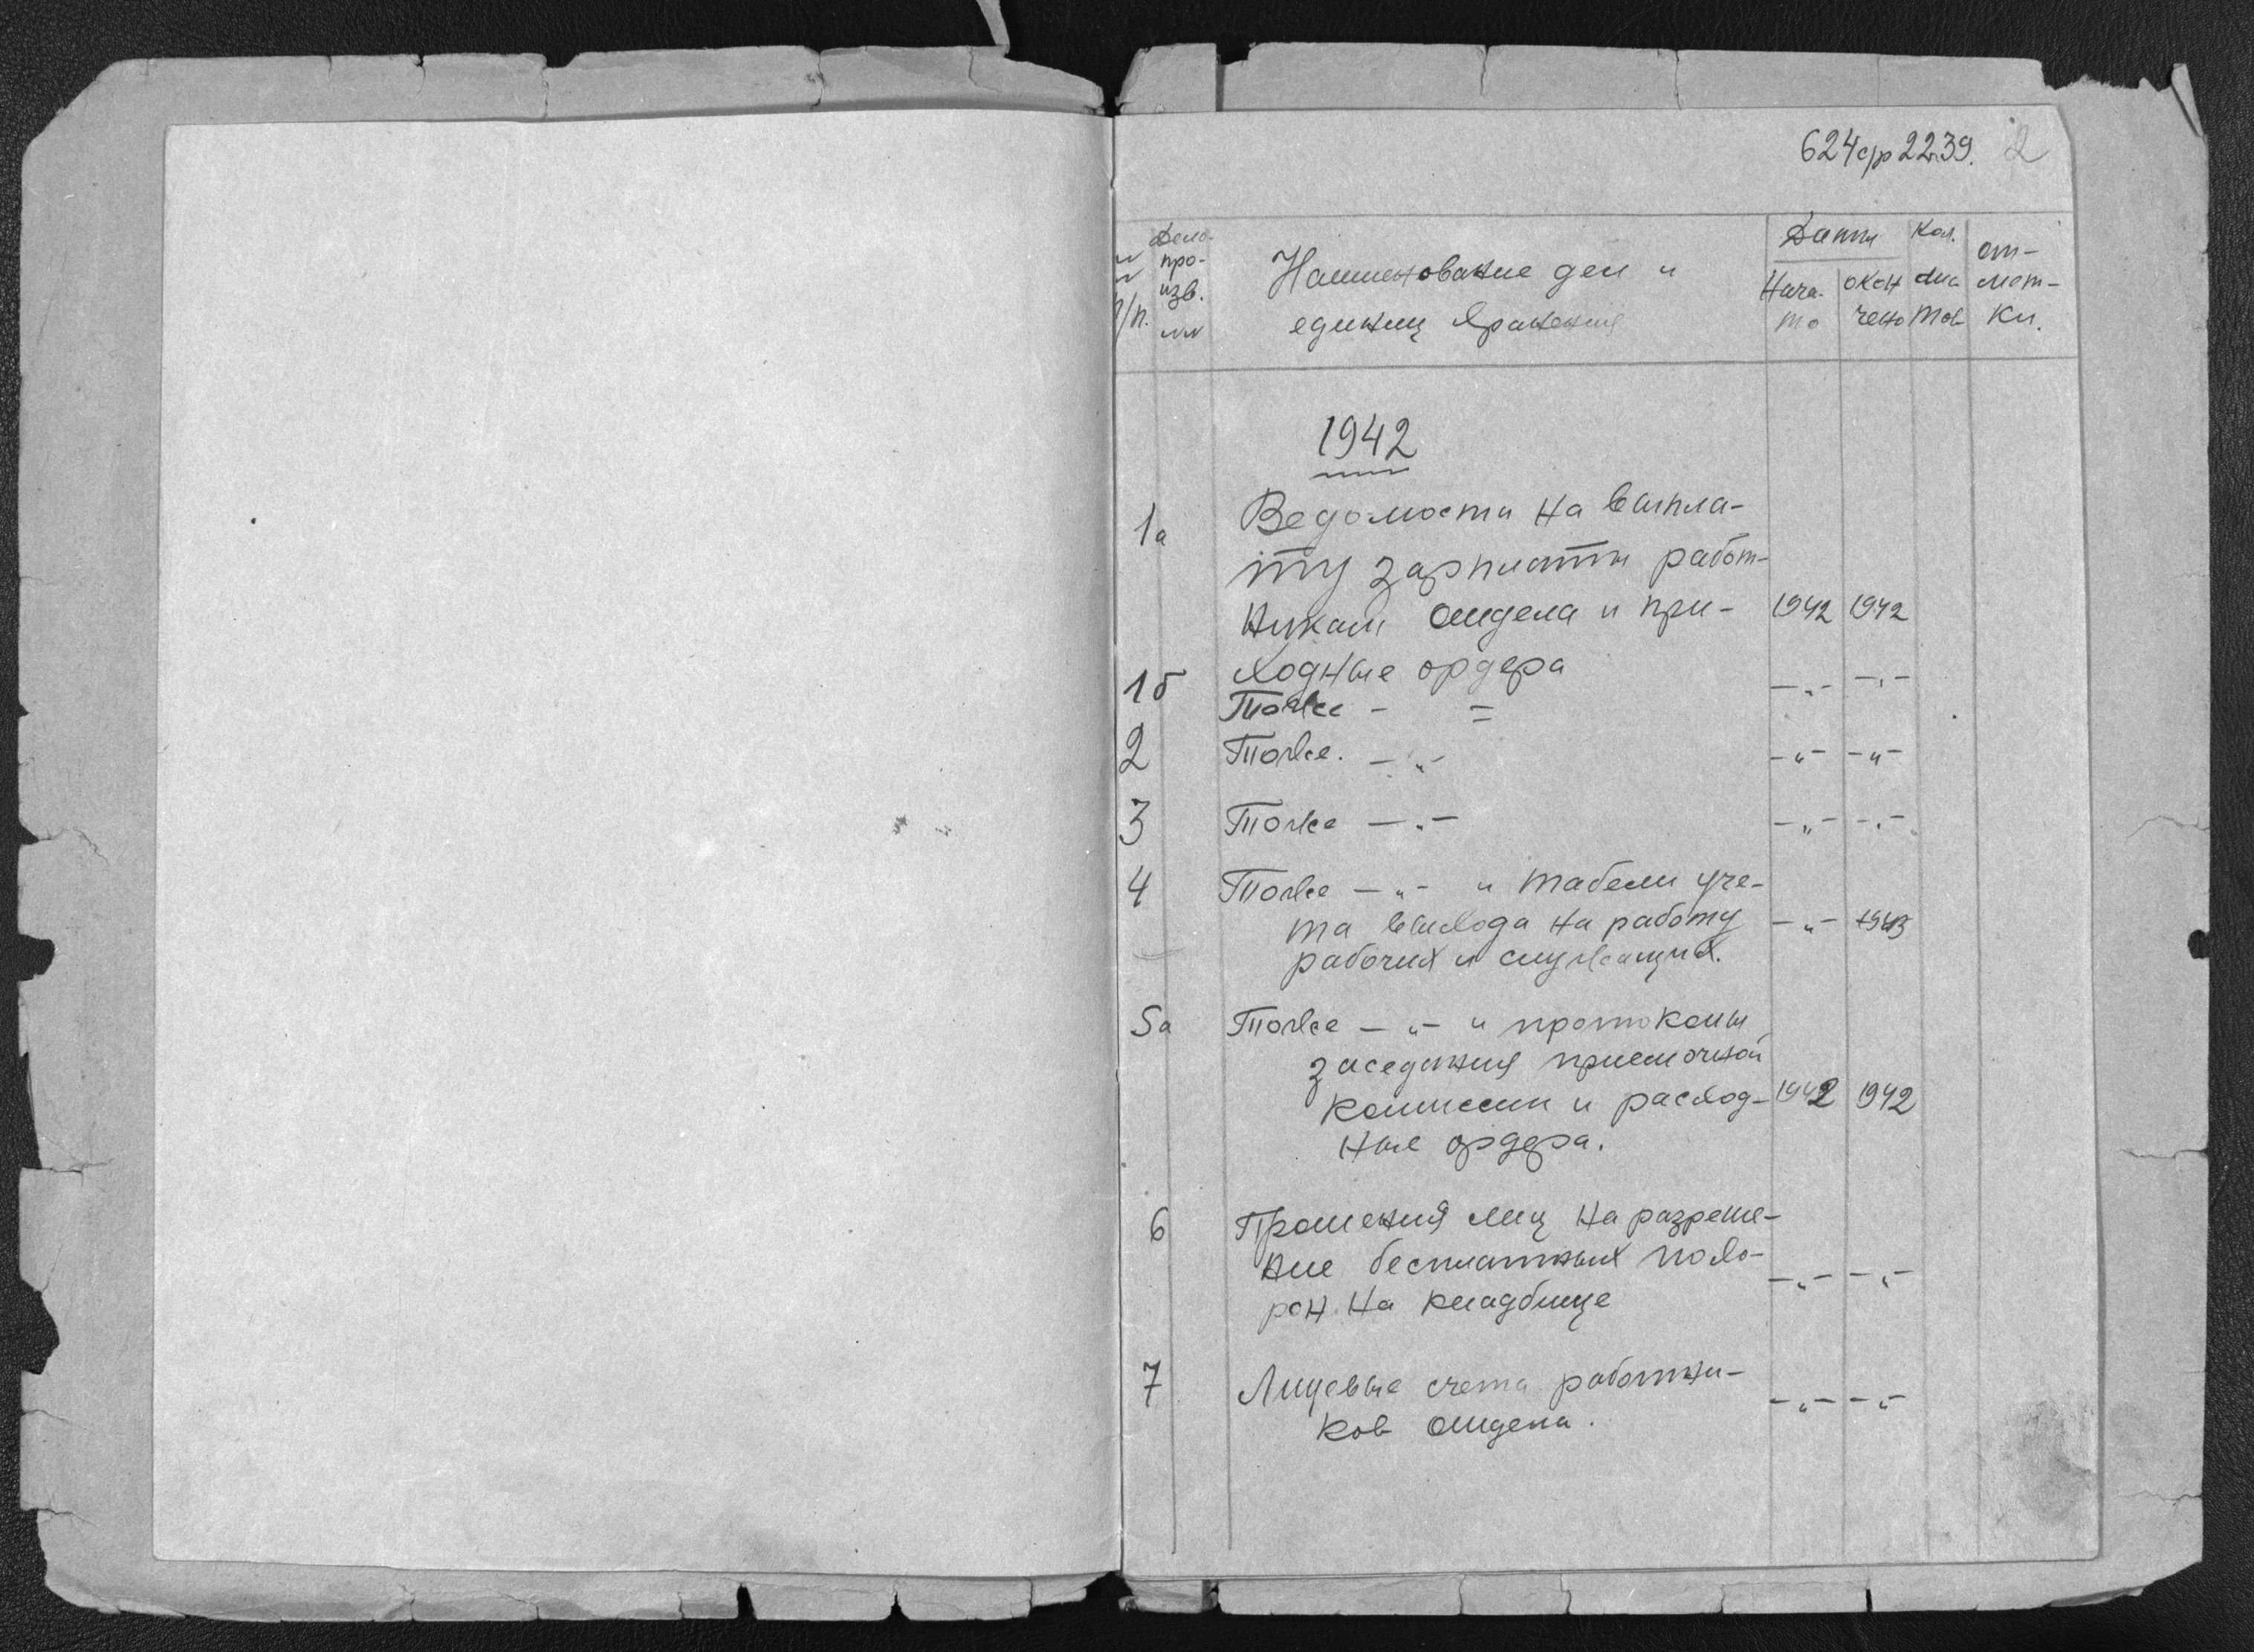 624 с/р 2239. 2
№№ п/п.
Дело-
про-
изв.
№№
Наименование дел и
единиц хранения
Даты
Нача-
то
окон
чено
Кол.
лис
тов
от-
мет-
ки.
1942
1а Ведомости на выпла-
ту зарплаты работ-
никам отдела и при- 1942 1942
ходные ордера
1б Тоже - = -„- -„-
2 Тоже. -„- -„- -„-
3 Тоже -„- -„- -„-
4 Тоже -„- и табели уче-
та выхода на работу -„- 1943
рабочих и служащих.
5а Тоже -„- и протоколы
заседания приемочной
комиссии и расход- 1942 1942
ные ордера.
6 Прошения лиц на разреше-
ние бесплатных похо- -„- -„-
рон на кладбище
7 Лицевые счета работни-
ков отдела. -„- -„-